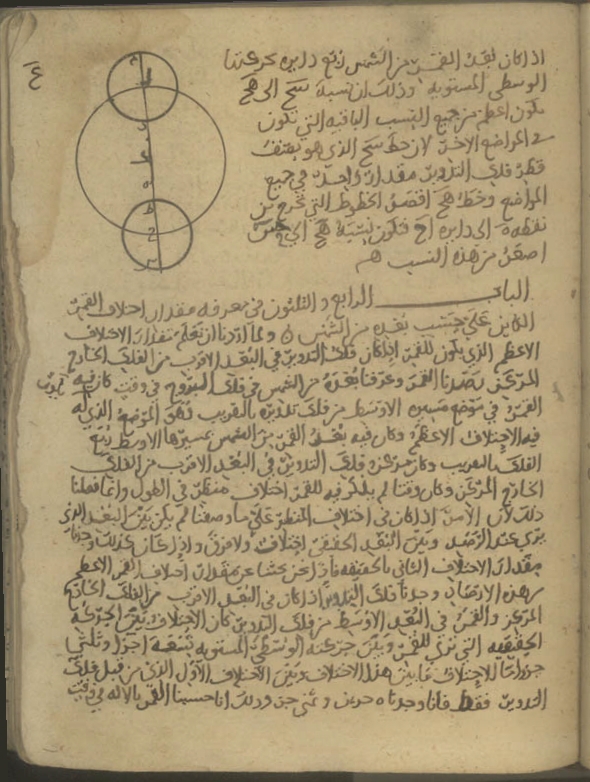 اذا كان بعد القمر من الشمس ربع دايره بحركتها
الوسطى المستويه وذلك ان نسبة سح الى هح
تكون اعظم من جميع النسب الباقيه التي تكون
في المواضع الاخر لان خط سح الذي هو نصف
قطر فلك التدوير مقدار واحد في جميع
المواضع وخط هح اقصر الخطوط التي تخرج من
نقطة ه الى دايره اح فتكون نسبة هح الى
اصغر من هذه النسب
الباب الرابع و الثلثون في معرفه مقدار اختلاف القمر
الكاين على حسب بعده من الشمس ولما اردنا ان نعلم مقدار الاختلاف
الاعظم الذي يكون للقمر اذا كان فلك التدوير في البعد الاقرب من الفلك الخارج
المركز رصدنا القمر وعرفنا بعده من الشمس في فلك البروج في وقت كان فيه
القمر في موضع مسيره الاوسط من فلك تدويره بالتقريب فهو الموضع الذي له
فيه الاختلاف الاعظم وكان فيه بعد القمر من الشمس بمسيرها الاوسط ربع
الفلك بالتقريب وكان مركز فلك التدوير في البعد الاقرب من الفلك
الخارج المركز وكان وقتا لم يكن فيه للقمر اختلاف منظر في الطول وانما فعلنا
ذلك لان الامر اذا كان في اختلاف المنظر على ما وصفنا لم يكن بين البعد الذي
يرى عند الرصد وبين البعد الحقيقي اختلاف ولا فرق واذا كان كذلك وجدنا
مقدار الاختلاف الثاني بالحقيقه فاذا نحن بحثنا عن مقدار اختلاف القمر الاعظم
من هذه الارصاد وجدنا فلك التدوير اذا كان في البعد الاقرب من الفلك الخارج
المركز والقمر في البعد الاوسط من فلك التدوير كان الاختلاف بين الحركة
الحقيقيه التي ترى للقمر وبين حركته الوسطى المستويه سبعة اجزا وثلثي
جزو اما الاختلاف فيما بين هذا الاختلاف وبين الاختلاف الاول الذي من قبل فلك
التدوير فقط فانا وجدناه جزين و ثلثي جزو وذلك انا حسبنا القمر بالاله في وقت